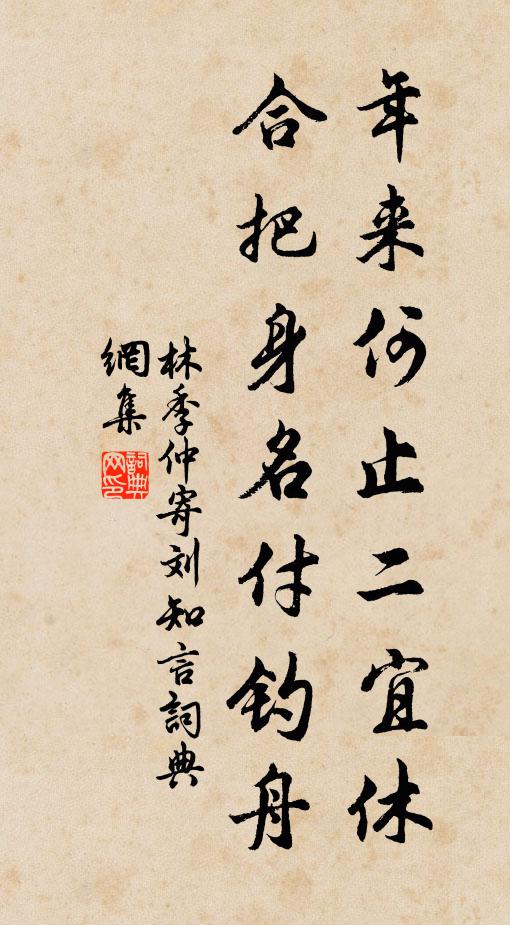 年来何止二宜休
合把身名付钓舟
林季仲寄刘知言詞典
網集
詞典网印